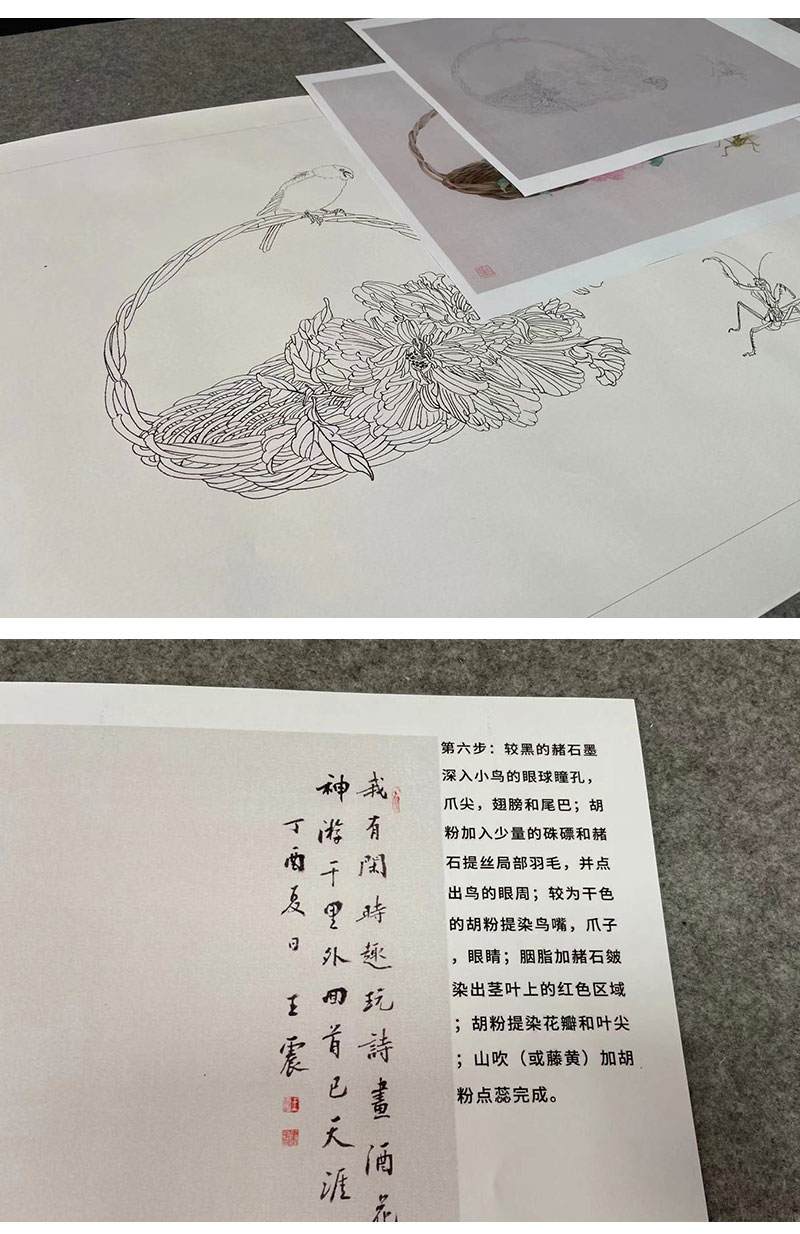 我有閑時趣玩詩畫酒花
神游千里外回首已天涯
丁酉夏日 王震
第六步：较黑的赭石墨
深入小鸟的眼球瞳孔，
爪尖，翅膀和尾巴；胡
粉加入少量的硃磦和赭
石提丝局部羽毛，并点
出鸟的眼周；较为干色
的胡粉提染鸟嘴，爪子
，眼睛；胭脂加赭石皴
染出茎叶上的红色区域
；胡粉提染花瓣和叶尖
；山吹（或藤黄）加胡
粉点蕊完成。